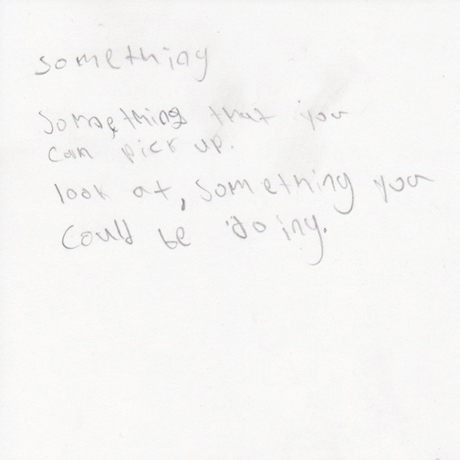 something
Something that you
can pick up.
look at, something you
could be doing.